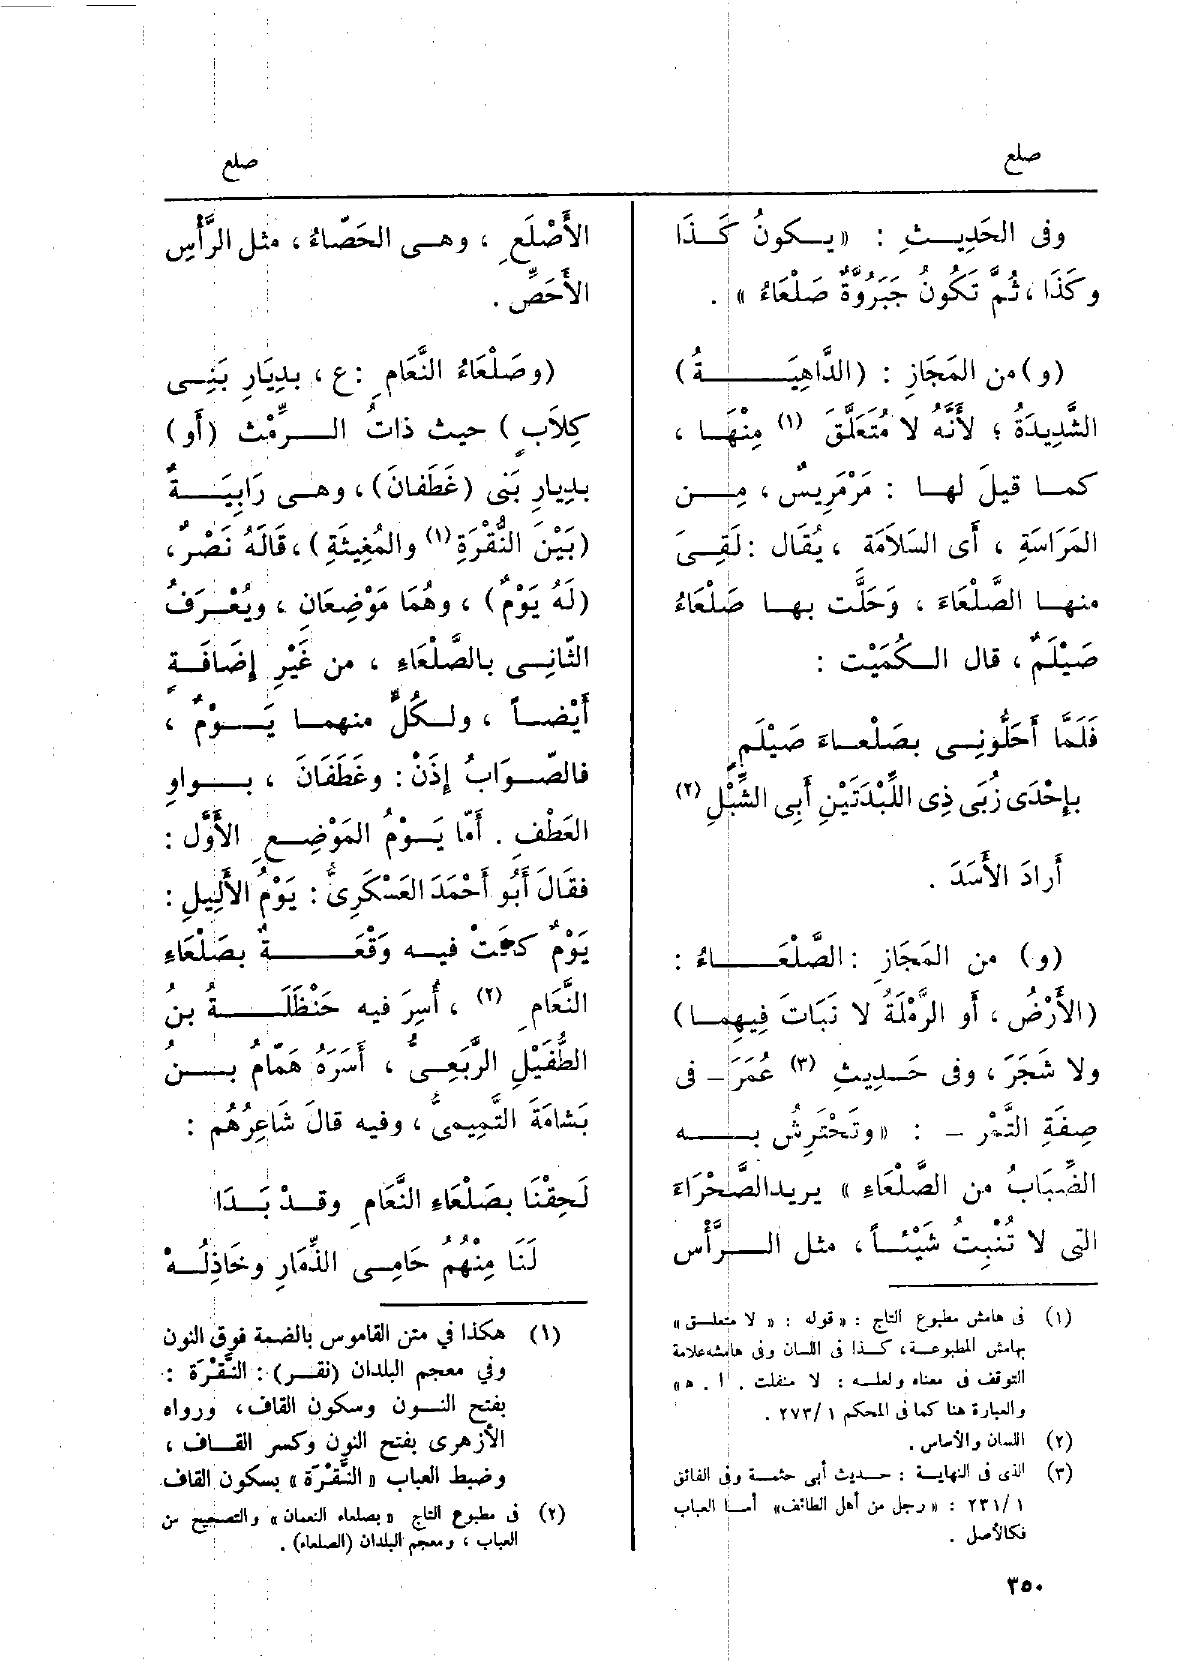 صلع
صلع
وفى الحَدِيثِ : « يكونُ كَذَا
وكَذَا ، ثُمَّ تَكُونُ جَبَرُوَّةٌ صَلْعَاءُ » .
(و) من المَجَازِ : (الدَّاهِيَةُ)
الشَّدِيدَةُ ؛ لأَنَّهُ لا مُتَعَلَّقَ (١) مِنْهَا ،
كما قيلَ لها : مَرْمَرِيسٌ ، مِن
المَرَاسَةِ ، أَى السَّلَامَة ، يُقَال : لَقِىَ
منها الصَّلْعَاءَ ، وَحَلَّتْ بها صَلْعَاءُ
صَيْلَمٌ ، قال الكُمَيْت :
فَلَمَّا أَحَلُّونِى بصَلْعاءَ صَيْلَمٍ
بإِحْدَى زُبَى ذِى اللِّبْدَتَيْنِ أَبى الشِّبْلِ (٢)
أَرادَ الأَسَدَ .
(و) من المَجَازِ : الصَّلْعَاءُ :
(الأَرْضُ ، أَو الرَّمْلَةُ لا نَبَاتَ فِيهِما)
ولا شَجَرَ ، وفى حَدِيثِ (٣) عُمَرَ – فى
صِفَةِ التَّمْر – : « وتَحْتَرِشُ به
الضِّبَابُ من الصَّلْعَاءِ » يريد الصَّحْرَاءَ
التى لا تُنْبِتُ شَيْئاً ، مثل الرَّأْس
(١) فى هامش مطبوع التاج : « قوله : « لا متعلق »
بهامش المطبوعة ، كذا فى اللسان وفى هامشه علامة
التوقف فى معناه ولعله : لا منفلت . ا . ه »
والعبارة هنا كما فى المحكم ١/ ٢٧٣ .
(٢) اللسان والأساس .
(٣) الذى فى النهاية : حديث أبى حثمة وفى الفائق
١/ ٢٣١ : « رجل من أهل الطائف » أما العباب
فكالأصل .
الأَصْلَعِ ، وهى الحَصّاءُ ، مثل الرَّأْسِ
الأَحَصِّ .
(وصَلْعَاءُ النَّعَامِ : ع ، بدِيَارِ بَنِى
كِلَابٍ) حيث ذاتُ الرِّمْث (أَو)
بدِيارِ بَنى (غَطَفانَ) ، وهى رَابِيَةٌ
(بَيْنَ النُّقْرَةِ (١) والمُغِيثَةِ) ، قَالَهُ نَصْرٌ ،
(لَهُ يَوْمٌ) ، وهُمَا مَوْضِعَانِ ، ويُعْرَفُ
الثّانِى بالصَّلْعَاءِ ، من غَيْرِ إِضَافَةٍ
أَيْضاً ، ولكُلٍّ منهما يَوْمٌ ،
فالصَّوَابُ إِذَنْ : وغَطَفَانَ ، بواوِ
العَطْفِ . أَمّا يَوْمُ المَوْضِعِ الأَوَّل :
فقَالَ أَبُو أَحْمَدَ العَسْكَرِىُّ : يَوْمُ الأَلِيلِ :
يَوْمٌ كانَتْ فيه وَقْعَةٌ بصَلْعَاءِ
النَّعَامِ (٢) ، أُسِرَ فيه حَنْظَلَةُ بنُ
الطُّفَيْلِ الرَّبَعِىُّ ، أَسَرَهُ هَمّامُ بنُ
بَشامَةَ التَّمِيمىُّ ، وفيه قالَ شَاعِرُهُم :
لَحِقْنَا بصَلْعَاءِ النَّعَامِ وقدْ بَدَا
لَنَا مِنْهُمُ حَامِى الذِّمَارِ وخَاذِلُهْ
(١) هكذا في متن القاموس بالضمة فوق النون
وفي معجم البلدان (نقر) : النَّقْرَة :
بفتح النون وسكون القاف ، ورواه
الأزهرى بفتح النون وكسر القاف ،
وضبط العباب « النَّقْرَة » بسكون القاف
(٢) فى مطبوع التاج « بصلعاء النعمان » والتصحيح من
العباب ، ومعجم البلدان (الصلعاء) .
٣٥٠